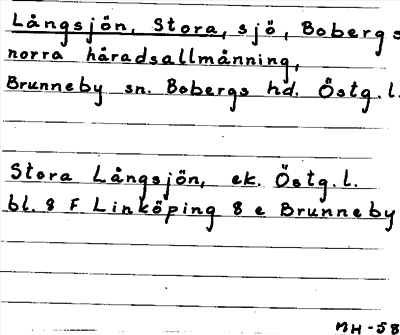 Långsjön, Stora, sjö, Bobergs
norra häradsallmänning,
Brunneby sn. Bobergs hd. Östg.l.
Stora Långsjön, ek. Östg.l.
bl. 8 F Linköping 8 e Brunneby
MH-58